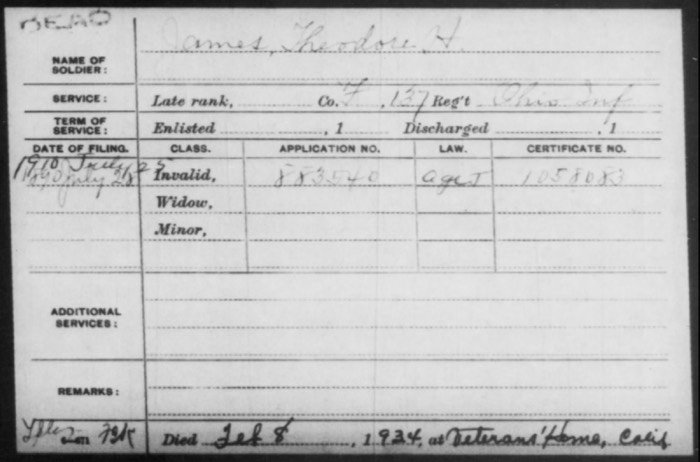 DEAD
James, Theodore H.
NAME OF SOLDIER:
SERVICE: Late rank, Co. F, 137 Reg't Ohio Inf
TERM OF SERVICE: Enlisted , 1 Discharged , 1
DATE OF FILING. CLASS. APPLICATION NO. LAW. CERTIFICATE NO.
1910 July 25
1890 July 28 Invalid, 883540 1058083
Widow,
Minor,
ADDITIONAL SERVICES:
REMARKS:
Died Feb 8, 1934, at Veterans' Home, Calif